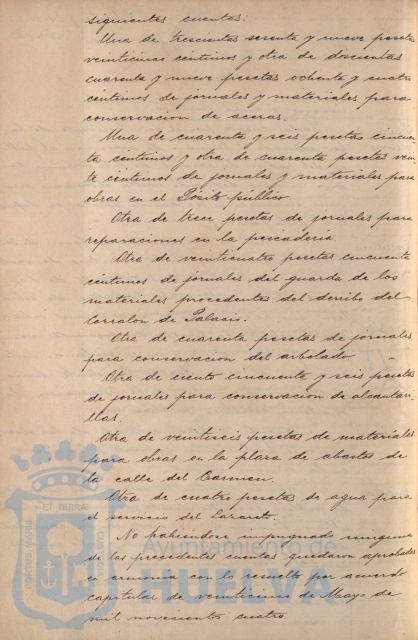 siguientes cuentas:
Una de trescientas sesenta y nueve pesetas
veinticinco céntimos y otra de doscientas
cuarenta y nueve pesetas ochenta y cuatro
céntimos de jornales y materiales para
conservacion de aceras.
Una de cuarenta y seis pesetas cincuen-
ta céntimos y otra de cuarenta pesetas vein-
te céntimos de jornales y materiales para
obras en el Pósito público
Otra de trece pesetas de jornales para
reparaciones en la pescaderia
Otra de veinticuatro pesetas cincuenta
céntimos de jornales del guarda de los
materiales procedentes del derribo del
Corralon de Palacio.
Otra de cuarenta pesetas de jornales
para conservacion del arbolado
Otra de ciento cincuenta y seis pesetas
de jornales para conservacion de alcantari-
llas.
Otra de veintiseis pesetas de materiales
para obras en la plaza de abastos de
la calle del Carmen.
Otra de cuatro pesetas de agua para
el servicio del Lazareto.
No habiéndose impugnado ninguna
de las precedentes cuentas quedaron aprobadas
en armonia con lo resuelto por acuerdo
capitular de veinticinco de Mayo de
mil novecientos cuatro.
PORTUS MARIS ET TERRAE CUSTODIA
Ayuntamiento de
HUELVA